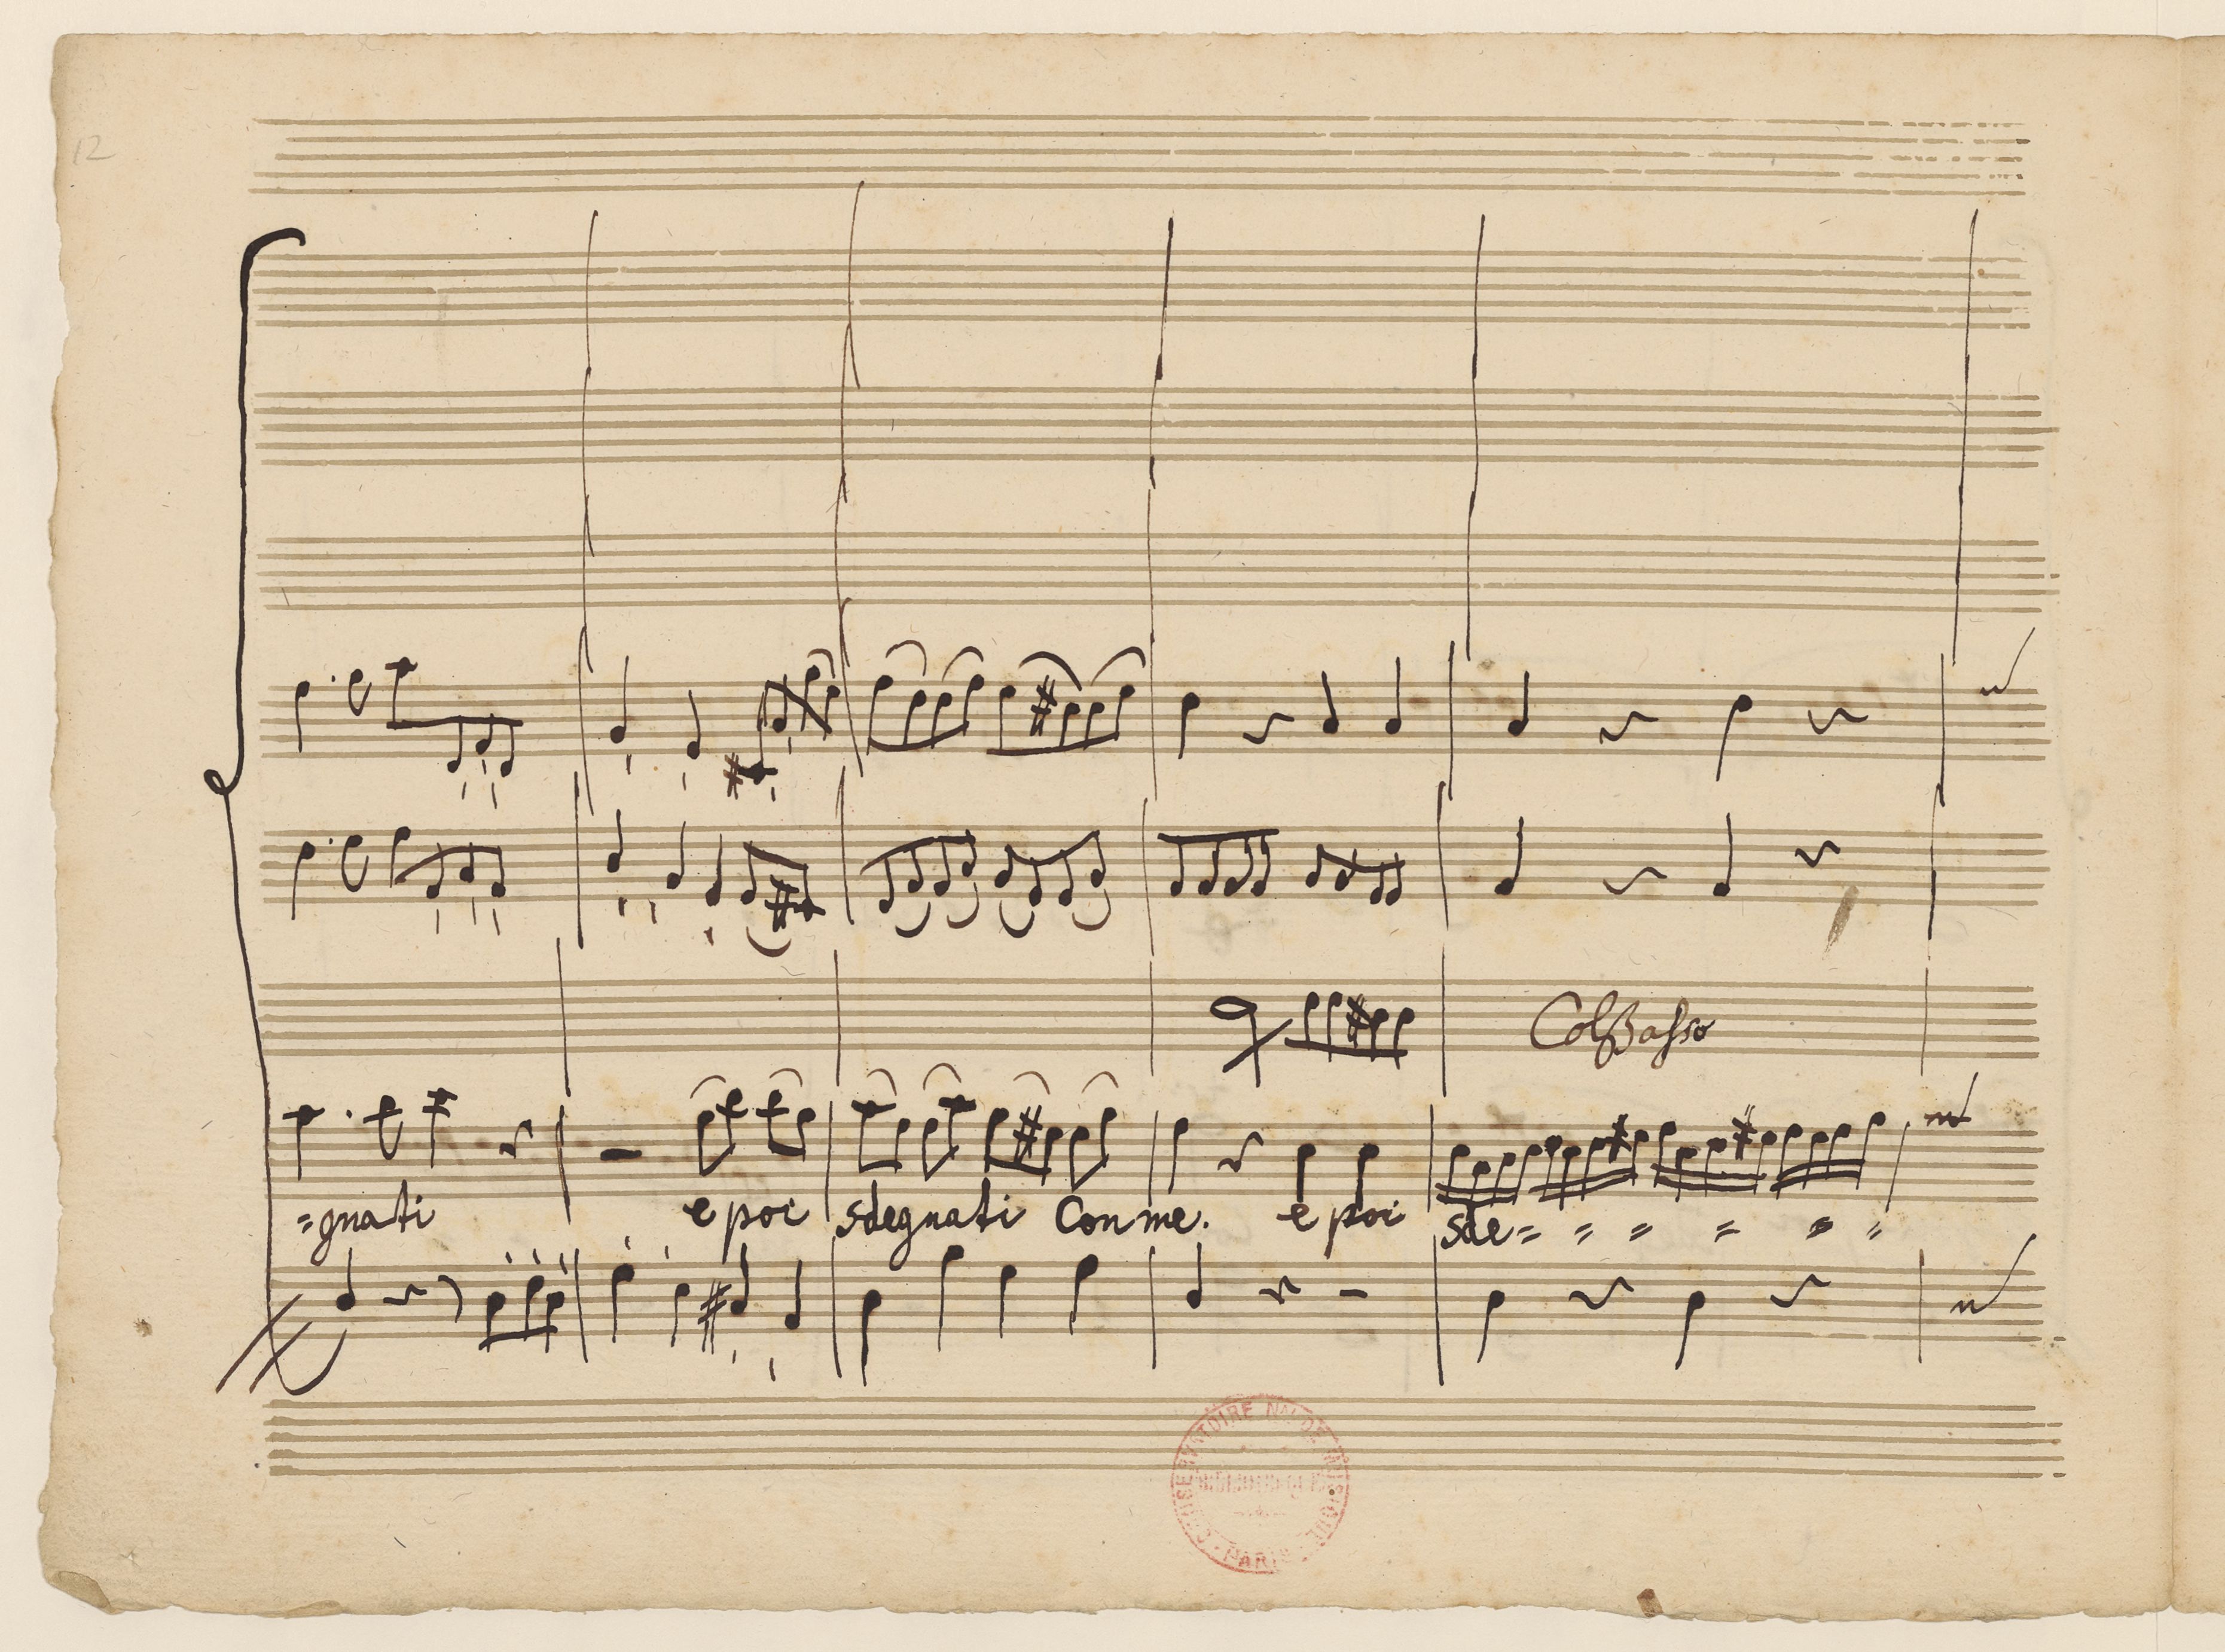 12
Col Basso
=gnati e poi sdegnati Con me. e poi sde= = = = = =
CONSERVATOIRE NAL DE MUSIQUE
BIBLIOTHÈQUE
PARIS